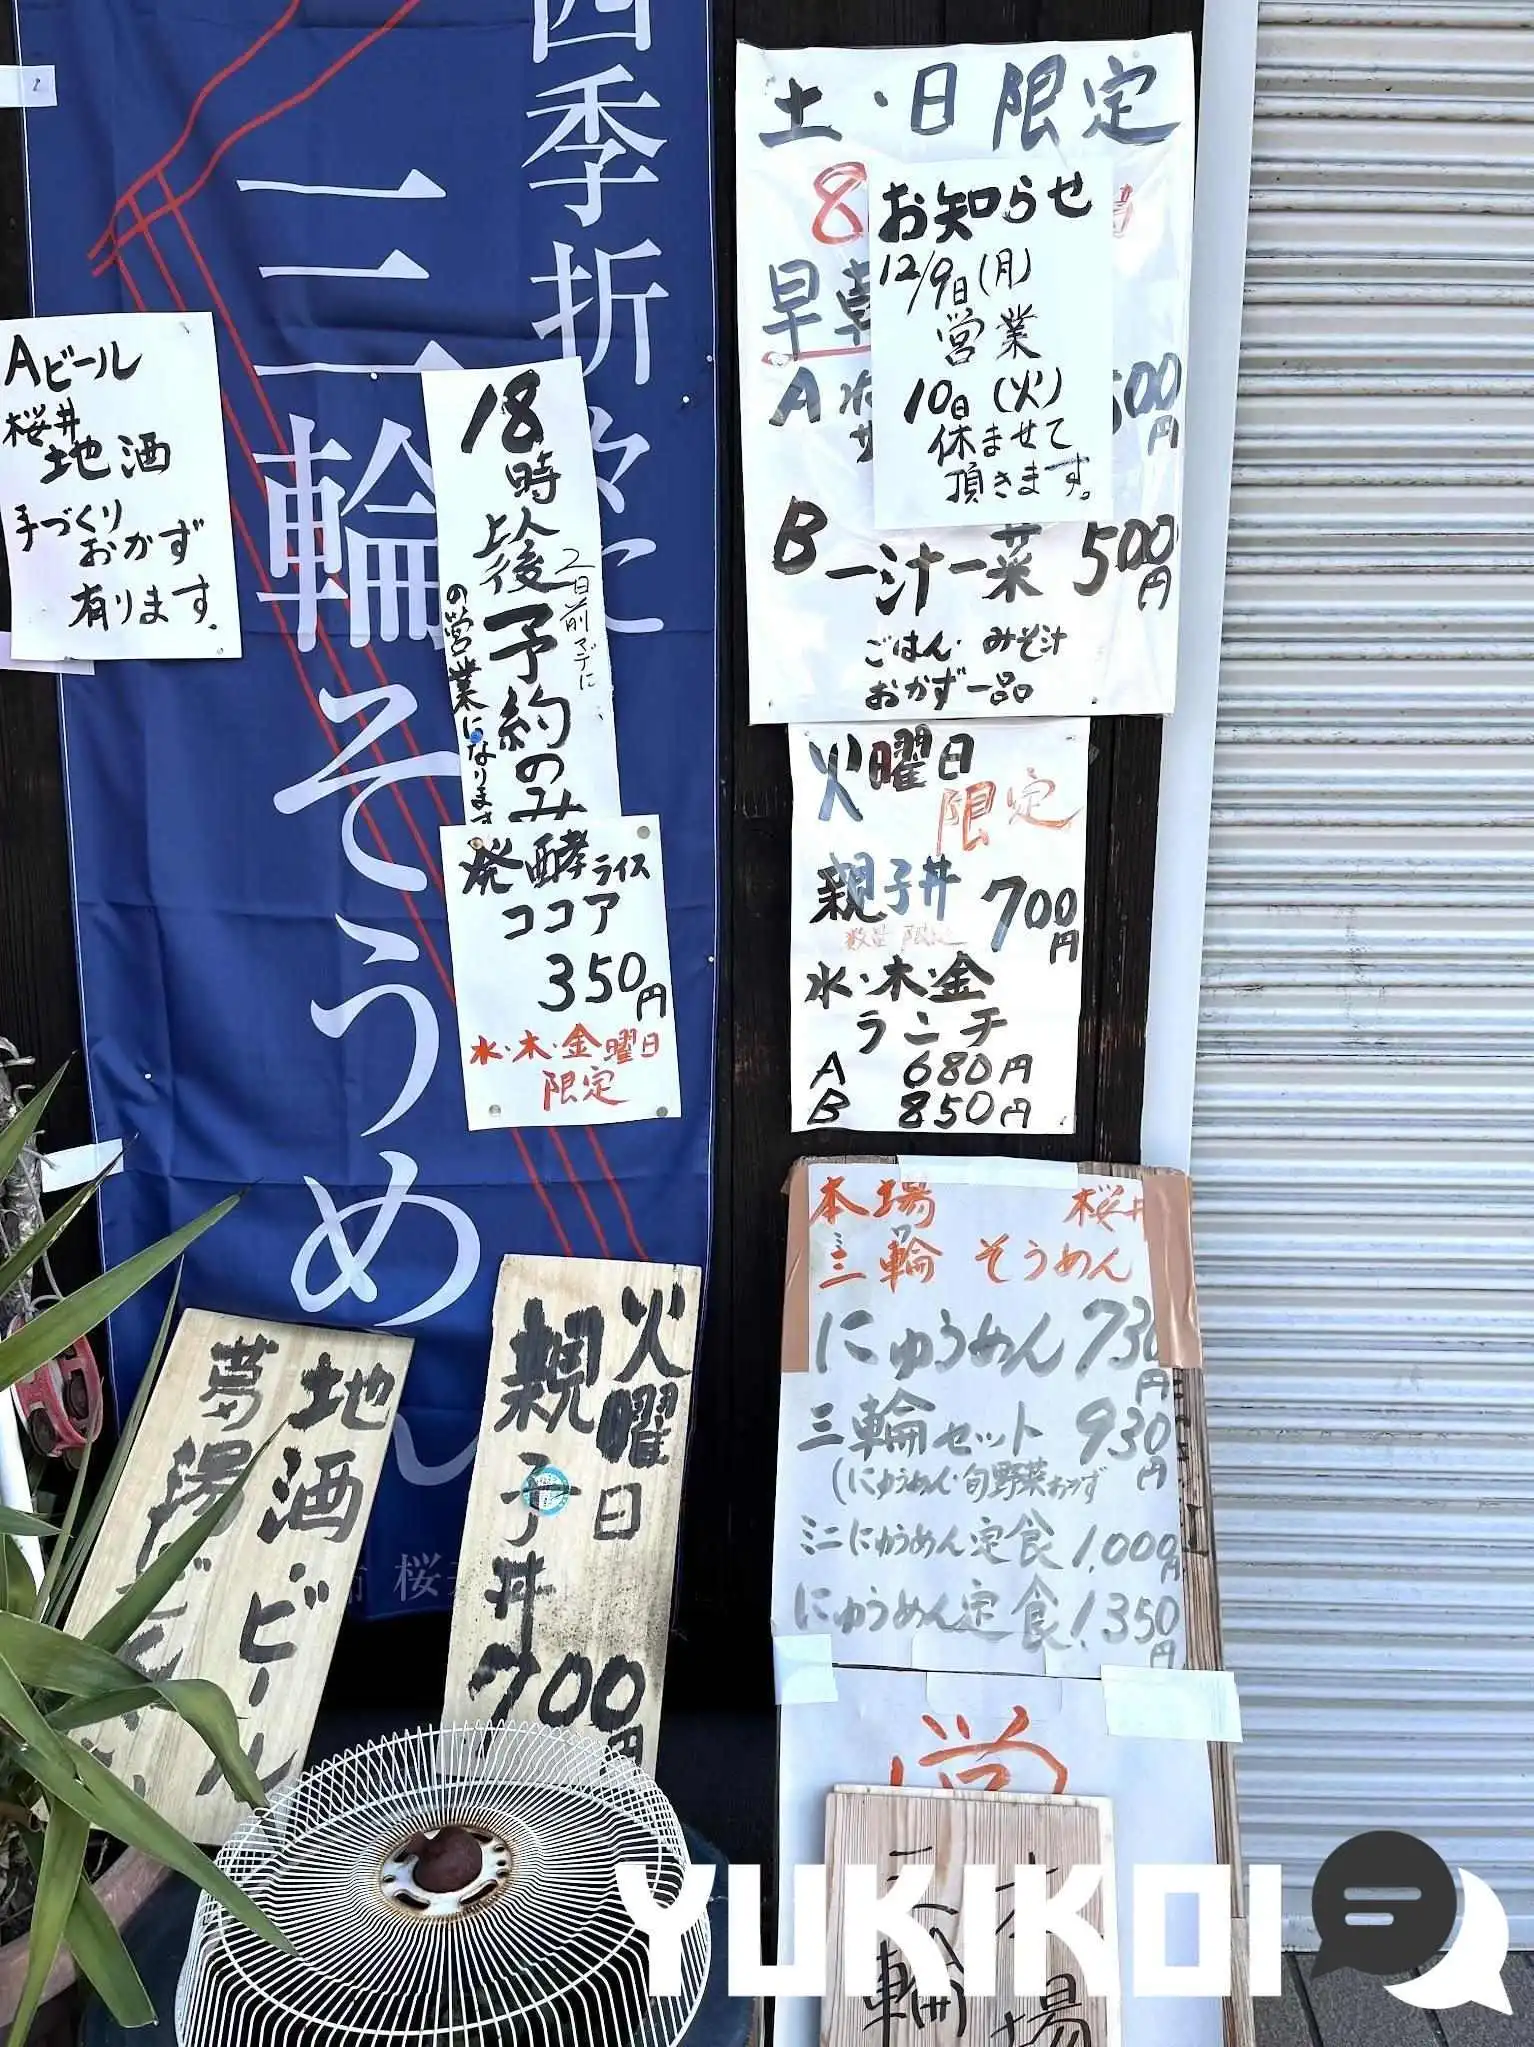 四季折々に
三輪そうめん
Aビール
桜井
地酒
手づくり
おかず
有ります。
18時以後予約のみ
2日前マデに
の営業になります
発酵ライス
ココア
350円
水・木・金曜日
限定
土・日限定
8
お知らせ
12/9日(月)
営業
10日(火)
休ませて
頂きます。
A
500円
B 一汁一菜 500円
ごはん・みそ汁
おかず一品
火曜日
限定
親子丼 700円
数量限定
水・木・金
ランチ
A 680円
B 850円
本場 桜井
三輪 そうめん
にゅうめん 730円
三輪セット 930円
(にゅうめん・旬野菜おかず
ミニにゅうめん定食 1,000円
にゅうめん定食 1,350円
地酒ビール
火曜日
親子丼
700円
桜井
本場
三輪
YUKIKOI